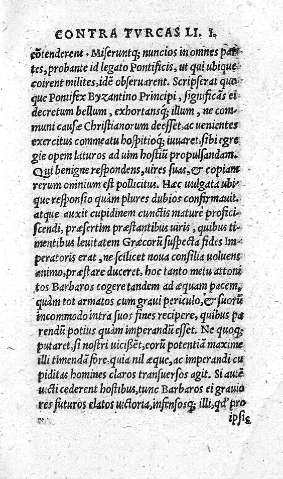 CONTRA TVRCAS LI. I.
cõtenderent. Miseruntq; nuncios in omnes par
tes, probante id legato Pontificis, ut qui ubique
coirent milites, idẽ obseruarent. Scripserat quo
que Pontifex Byzantino Principi, significãs ei
decretum bellum, exhortansq; illum, ne com
muni causæ Christianorum deesset, ac uenientes
exercitus commeatu hospitioq; iuuaret, sibi egre
gie opem laturos ad uim hostiũ propulsandam.
Qui benigne respondens, uires suas, & copiam
rerum omnium est pollicitus. Hæc uulgata ubi
que responsio quàm plures dubios confirmauit,
atque auxit cupidinem cunctis mature profici
scendi, præsertim præstantibus uiris, quibus ti
mentibus leuitatem Græcorũ suspecta fides Im
peratoris erat, ne scilicet noua consilia uoluens
animo, præstare duceret, hoc tanto metu attoni
tos Barbaros cogere tandem ad æquam pacem,
quàm tot armatos cum graui periculo, & suorũ
incommodo intra suos fines recipere, quibus pa
rendũ potius quàm imperandũ esset. Ne quoq;
putaret, si nostri uicissẽt, eorũ potentiã maxime
illi timendã fore. quia nil æque, ac imperandi cu
piditas homines claros transuersos agit. Si autẽ
uicti cederent hostibus, tunc Barbaros ei grauio
res futuros elatos uictoria, infensosq; illi, qđ pro
ipsis